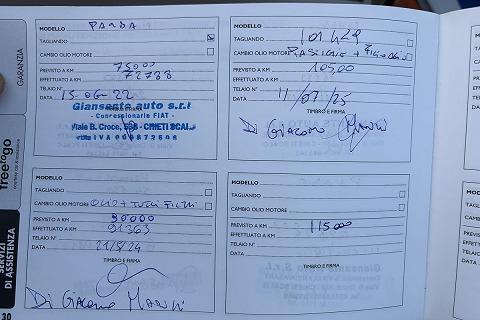 GARANZIA
freetogo
SERVIZI
DI ASSISTENZA
30
MODELLO PANDA
TAGLIANDO
CAMBIO OLIO MOTORE
PREVISTO A KM 75000
EFFETTUATO A KM 72788
TELAIO N°
DATA 15-06-22
TIMBRO E FIRMA
Giansante auto s.r.l
- Concessionaria FIAT -
Viale B. Croce, - CHIETI SCALO
P. IVA
MODELLO
TAGLIANDO 101429
CAMBIO OLIO MOTORE + Filtro olio
PREVISTO A KM
EFFETTUATO A KM 105,00
TELAIO N°
DATA 11/07/25
TIMBRO E FIRMA
Di Giacomo
MODELLO
TAGLIANDO
CAMBIO OLIO MOTORE OLIO + TUTTI FILTRI
PREVISTO A KM 90000
EFFETTUATO A KM 91363
TELAIO N°
DATA 21/5/24
TIMBRO E FIRMA
Di Giacomo
MODELLO
TAGLIANDO
CAMBIO OLIO MOTORE
PREVISTO A KM
EFFETTUATO A KM 115000
TELAIO N°
DATA
TIMBRO E FIRMA